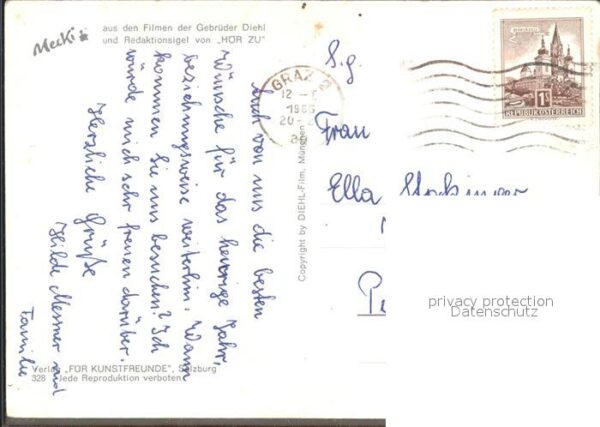 Mecki
aus den Filmen der Gebrüder Diehl
und Redaktionsigel von „HÖR ZU"
Auch von uns die besten
Wünsche für das heurige Jahr,
beziehungsweise weiterhin. Wann
kommen Sie uns besuchen? Ich
würde mich sehr freuen darüber.
Herzliche Grüße
Hilde Messner und
Familie
Verlag „FÜR KUNSTFREUNDE", Salzburg
328 Jede Reproduktion verboten
Copyright by DIEHL-Film, München
GRAZ 2
12
1966
REPUBLIK ÖSTERREICH
1S
S.g.
Frau
Ella
privacy protection
Datenschutz